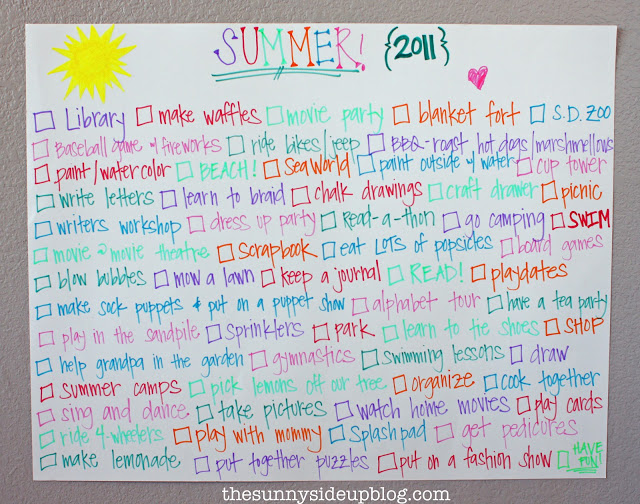 SUMMER! {2011}
Library make waffles movie party blanket fort S.D. ZOO
Baseball game w/ fireworks ride bikes/jeep BBQ-roast hot dogs/marshmellows
paint/watercolor BEACH! Sea World paint outside w/ water cup tower
write letters learn to braid chalk drawings craft drawer picnic
writers workshop dress up party Read-a-thon go camping SWIM
movie @ movie theatre Scrapbook eat LOTS of popsicles board games
blow bubbles mow a lawn keep a journal READ! playdates
make sock puppets & put on a puppet show alphabet tour have a tea party
play in the sandpile Sprinklers park learn to tie shoes SHOP
help grandpa in the garden gymnastics Swimming lessons draw
Summer camps pick lemons off our tree organize cook together
sing and dance take pictures watch home movies play cards
ride 4-wheelers play with mommy Splash pad get pedicures
make lemonade put together puzzles put on a fashion show HAVE FUN!
thesunnysideupblog.com